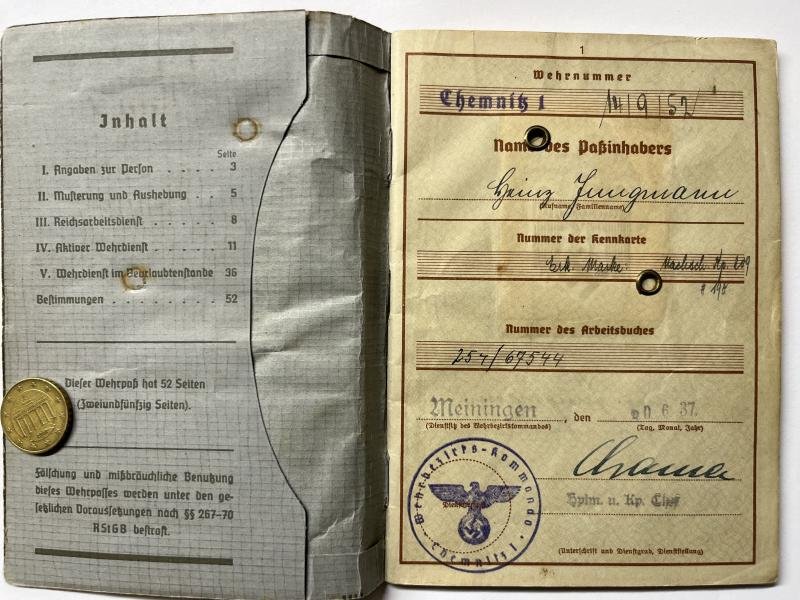 Inhalt
Seite
I. Angaben zur Person . . . . . 3
II. Musterung und Aushebung . . 5
III. Reichsarbeitsdienst . . . . . 8
IV. Aktiver Wehrdienst . . . . . 11
V. Wehrdienst im Beurlaubtenstande 36
Bestimmungen . . . . . . . . 52
Dieser Wehrpaß hat 52 Seiten
(Zweiundfünfzig Seiten).
Fälschung und mißbräuchliche Benutzung
dieses Wehrpasses werden unter den ge-
setzlichen Voraussetzungen nach §§ 267-70
RStGB bestraft.
1
Wehrnummer
Chemnitz 1 /14/9/52/
Name des Paßinhabers
Heinz Jungmann
(Rufname, Familienname)
Nummer der Kennkarte
Erk. Marke
Nummer des Arbeitsbuches
257/67544
Meiningen, den 20 6. 37.
(Dienstsitz des Wehrbezirkskommandos) (Tag, Monat, Jahr)
Wehrbezirks-Kommando
Chemnitz 1.
Hptm. u. Kp. Chef
(Unterschrift und Dienstgrad, Dienststellung)